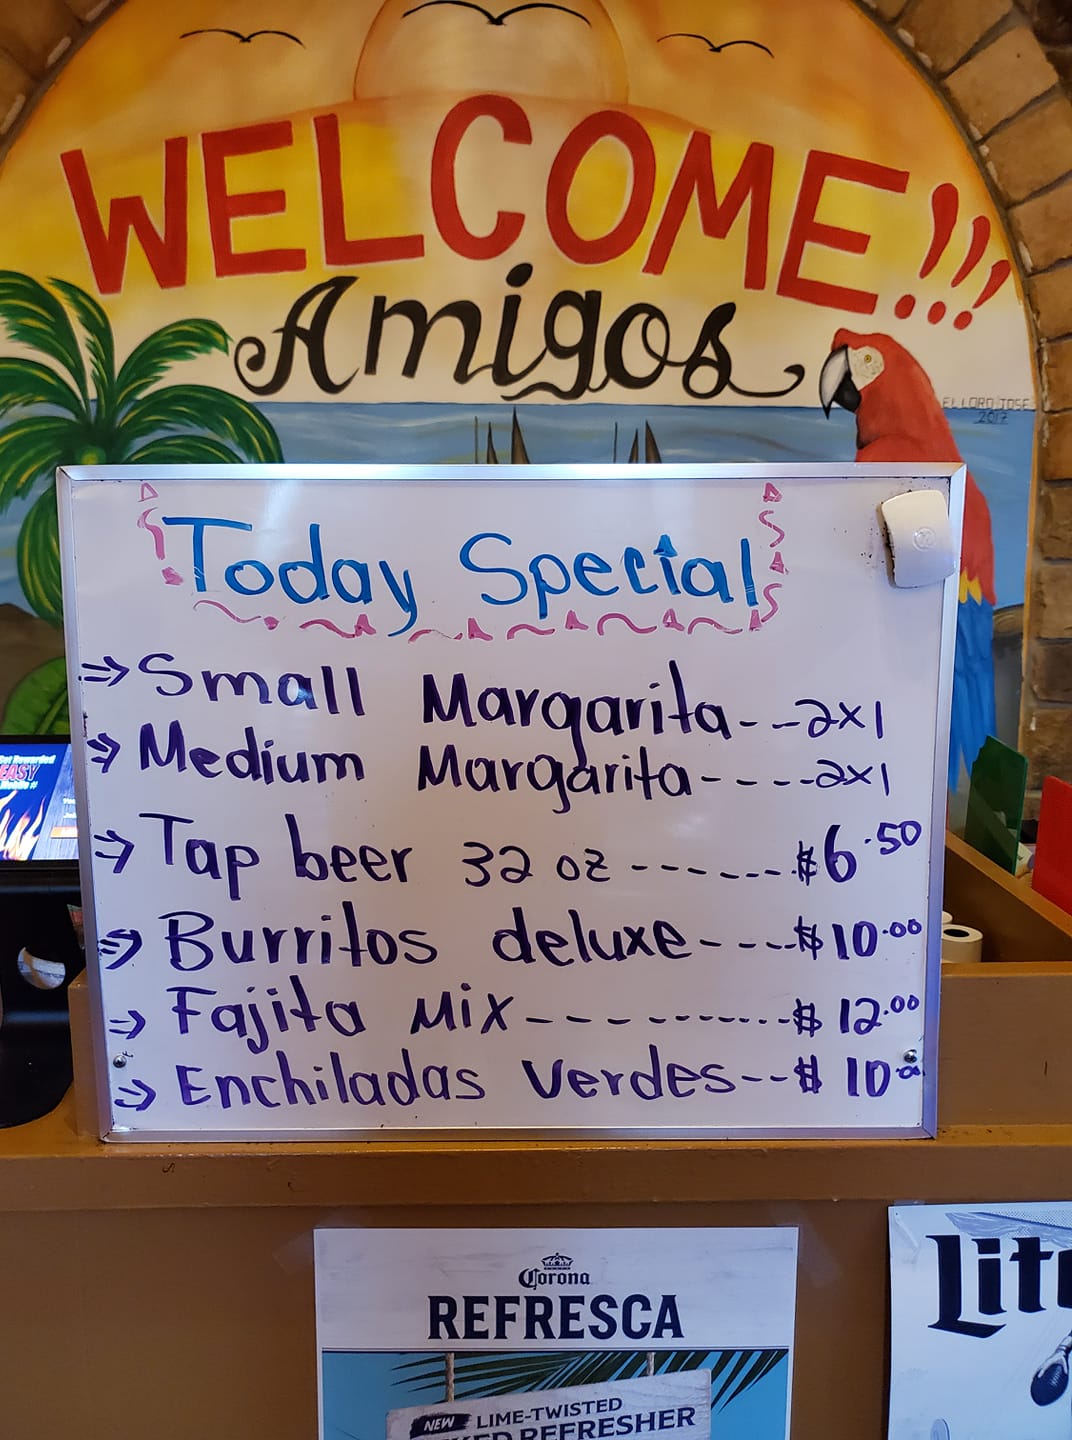 WELCOME!!!
Amigos
ELLORD JOSE
2017
Today Special
⇒ Small Margarita - - 2x1
⇒ Medium Margarita - - - - 2x1
⇒ Tap beer 32 oz - - - - - - $6.50
⇒ Burritos deluxe - - - - $10.00
⇒ Fajita Mix - - - - - - - - - - $12.00
⇒ Enchiladas Verdes - - $10
Rewarded
EASY
Corona
REFRESCA
NEW LIME-TWISTED
REFRESHER
Lite